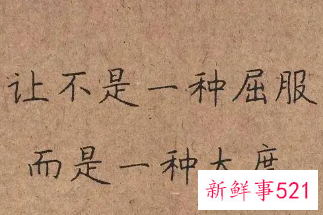 让不是一种屈服
而是一种大度
新鲜事521